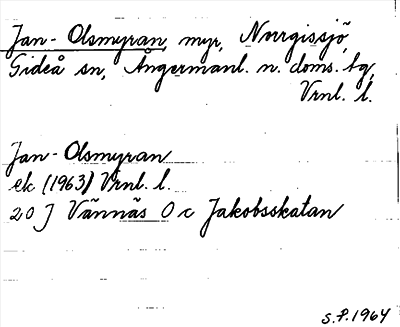 Jan-Olsmyran, myr, Norrgissjö,
Gideå sn, Ångermanl. n. doms. tg,
Vrnl. l.
Jan-Olsmyran
ek (1963) Vrnl. l.
20 J Vännäs O c Jakobsskatan
S.P. 1964